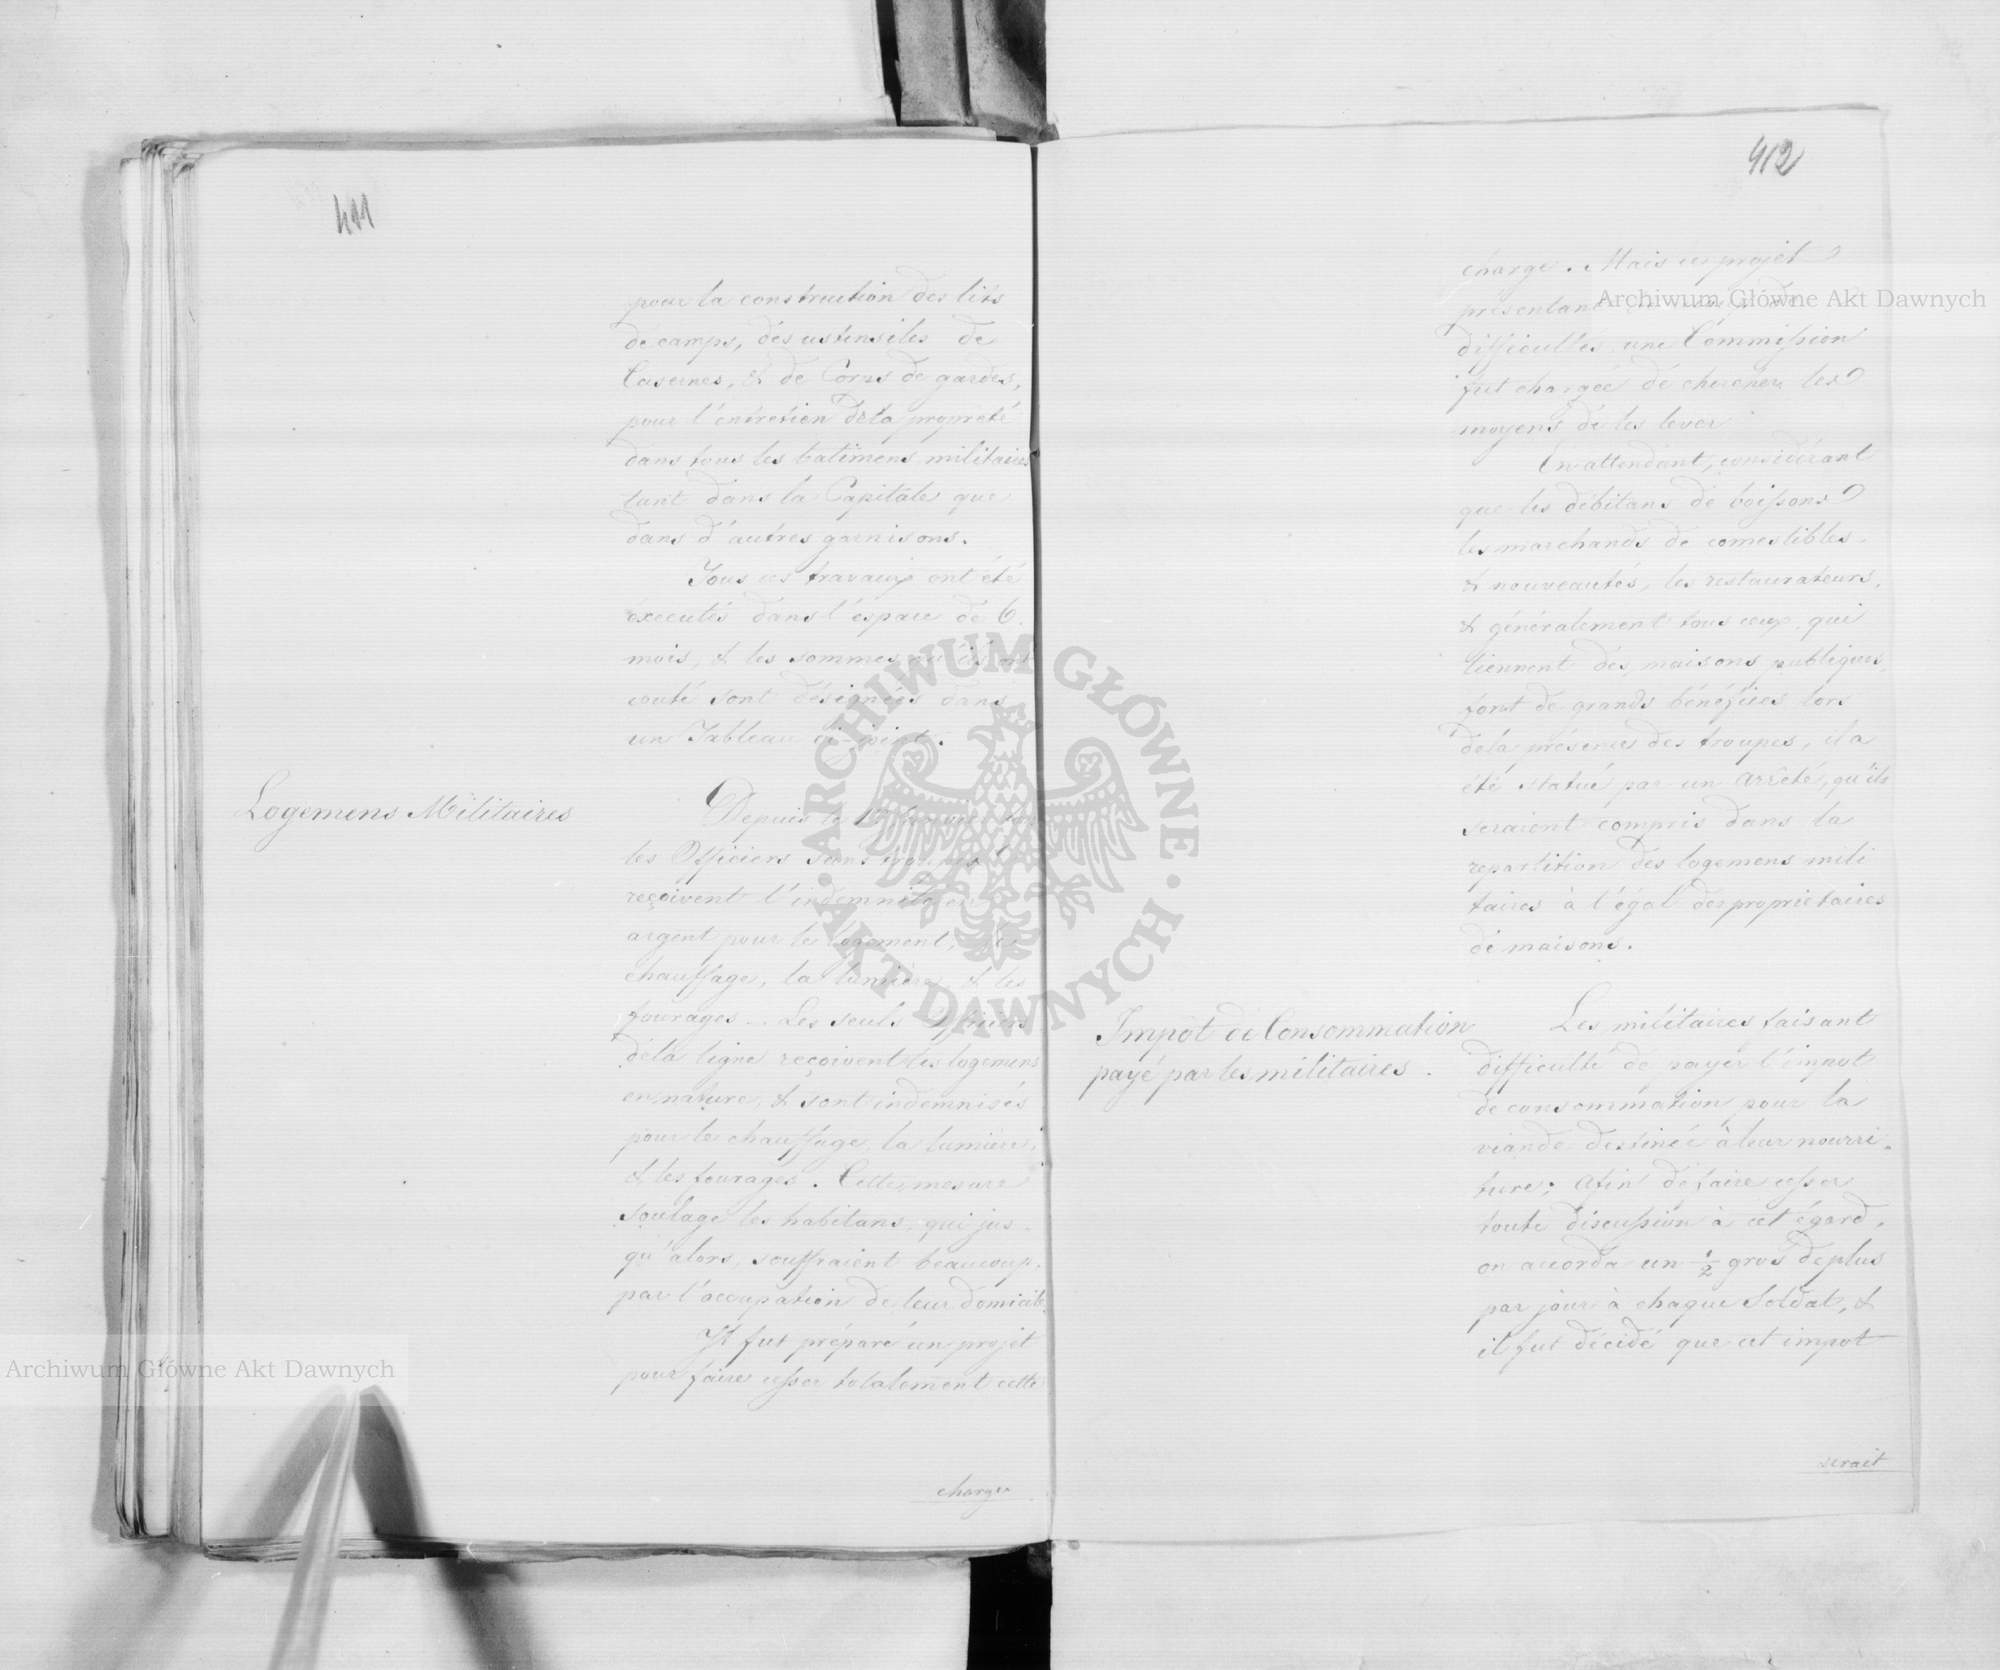 411
pour la construction des lits
de camps, des ustensiles de
Casernes, & de Corps de gardes,
pour l'entretien de la propreté
dans tous les batimens militaires
tant dans la Capitale que
dans d'autres garnisons.
Tous ces travaux ont été
executés dans l'espace de 6
mois, & les sommes qu'ils ont
couté sont désignées dans
un Tableau ci-joint.
Logemens Militaires
Depuis le 1er
les Officiers sans troupes
reçoivent l'indemnité en
argent pour le logement, le
chauffage, la lumière & les
fourages. Les seuls Officiers
de la ligne reçoivent les logemens
en nature, & sont indemnisés
pour le chauffage, la lumière,
& les fourages. Cette mesure
soulage les habitans, qui jus-
qu'alors, souffraient beaucoup,
par l'occupation de leur domicile
Il fut préparé un projet
pour faire cesser totalement cette
charge
412
charge. Mais ce projet
présentant
difficultés, une Commission
fut chargée de chercher les
moyens de les lever
En attendant, considérant
que les débitans de boissons
les marchands de comestibles
& nouveautés, les restaurateurs,
& généralement tous ceux qui
tiennent des maisons publiques,
font de grands bénéfices lors
de la présence des troupes, il a
été statué par un arrêté, qu'ils
seraient compris dans la
repartition des logemens mili
taires à l'égal des proprietaires
de maisons.
Impôt de Consommation
payé par les militaires.
Les militaires faisant
difficulté de payer l'impot
de consommation pour la
viande destinée à leur nourri-
ture; afin de faire cesser
toute discussion à cet égard,
on accorda un ½ gros de plus
par jour à chaque Soldat, &
il fut décidé que cet impot
serait
Archiwum Główne Akt Dawnych
Archiwum Główne Akt Dawnych
ARCHIWUM GŁÓWNE · AKT DAWNYCH ·